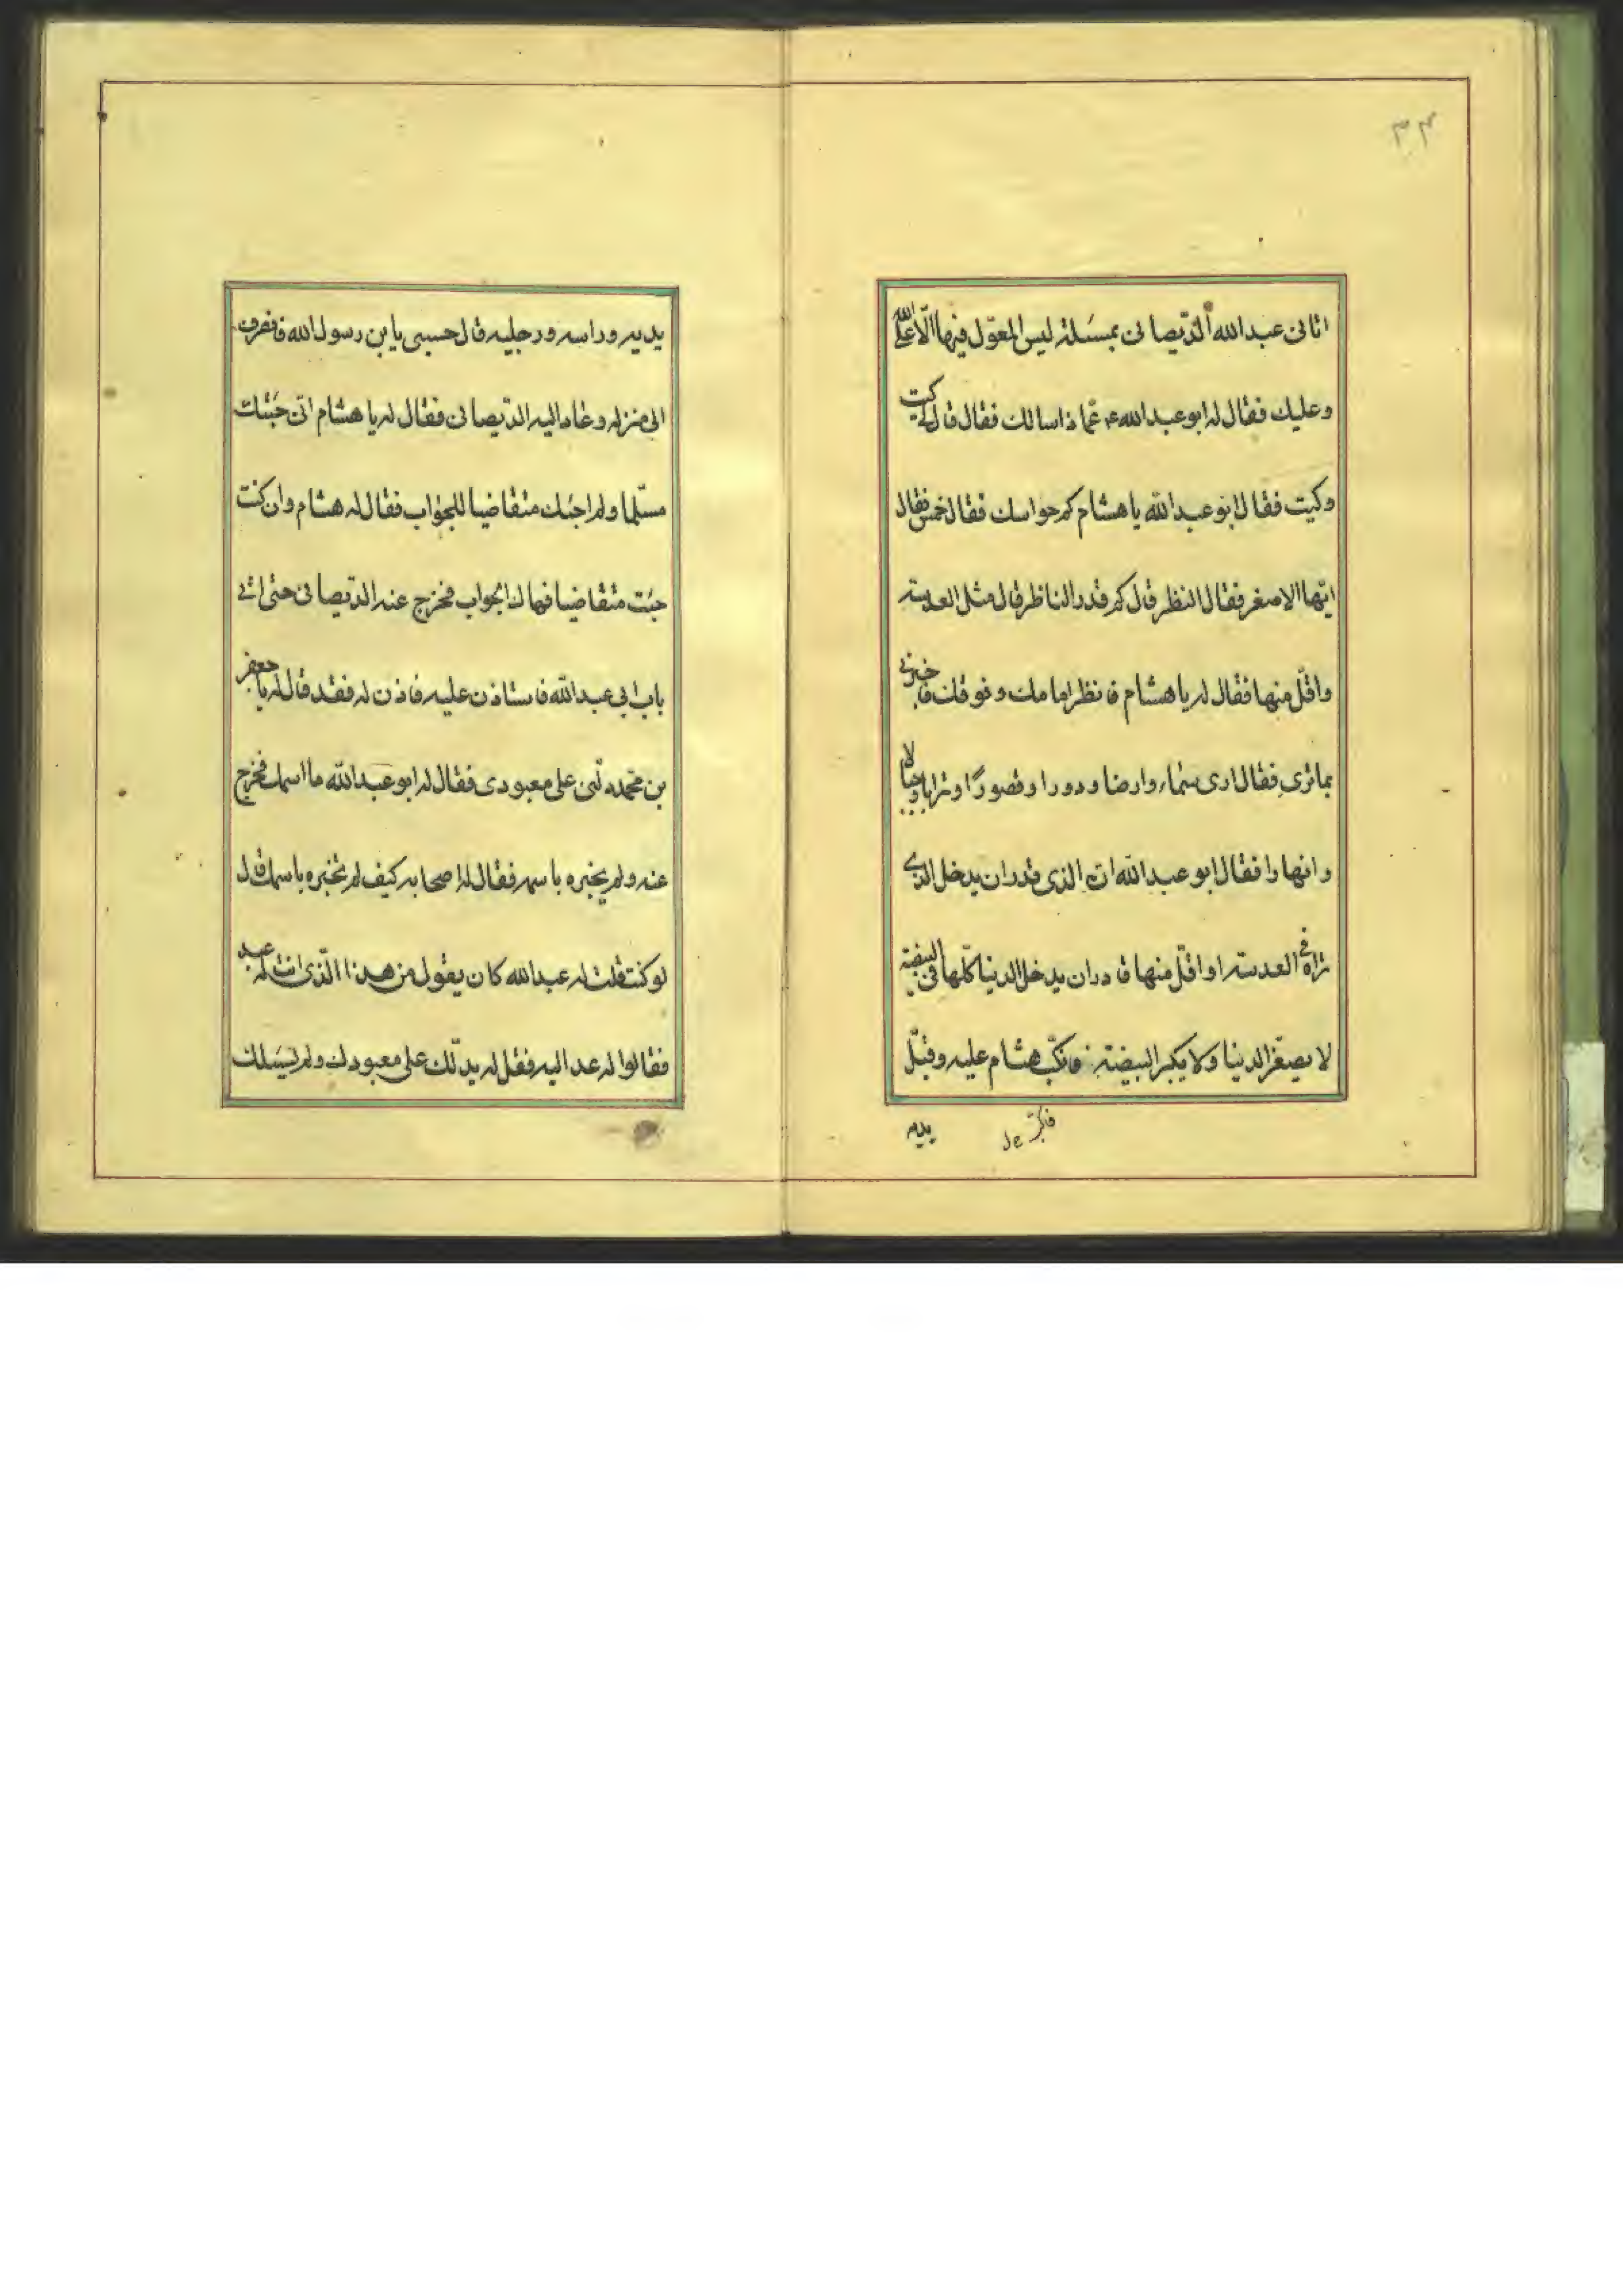 ۳۴
اتانى عبد الله الدّيصانى بمسئلة ليس المعوّل فيها الّا على الله
وعليك فقال له ابو عبد الله ع عمّا ذا سالك فقال قال لى كيت
وكيت فقال ابو عبد الله يا هشام كم حواسك فقال خمس فقال
ايّها الاصغر فقال النظر قال كم قدر الناظر قال مثل العدسة
واقلّ منها فقال له يا هشام فانظر امامك وفوقك فاخبرنى
بما ترى فقال ارى سماء وارضا ودورا وقصورًا وترابا وجبالا
وانهارا فقال ابو عبد الله انّ الذى قدر ان يدخل الذى
تراه فى العدسة او اقلّ منها قادر ان يدخل الدنيا كلّها فى البيضة
لا يصغّر الدنيا ولا يكبر البيضة فانكبّ هشام عليه وقبّل
يديه
يديه وراسه ورجليه قال حسبى يابن رسول الله فانصرف
الى منزله وغدا اليه الدّيصانى فقال له يا هشام انّى جئتك
مسلّما ولم اجئك متقاضيا للجواب فقال له هشام وان كنت
جئت متقاضيا فهاك الجواب فخرج عنه الدّيصانى حتى اتى
باب ابى عبد الله فاستاذن عليه فاذن له فقعد قال له يا جعفر
بن محمّد دلّنى على معبودى فقال له ابو عبد الله ما اسمك فخرج
عنه ولم يخبره باسمه فقال له اصحابه كيف لم تخبره باسمك قال
لو كنت قلت له عبد الله كان يقول من هذا الّذى انت له عبد
فقالوا له عد اليه فقل له يدلّك على معبودك ولم يسئلك